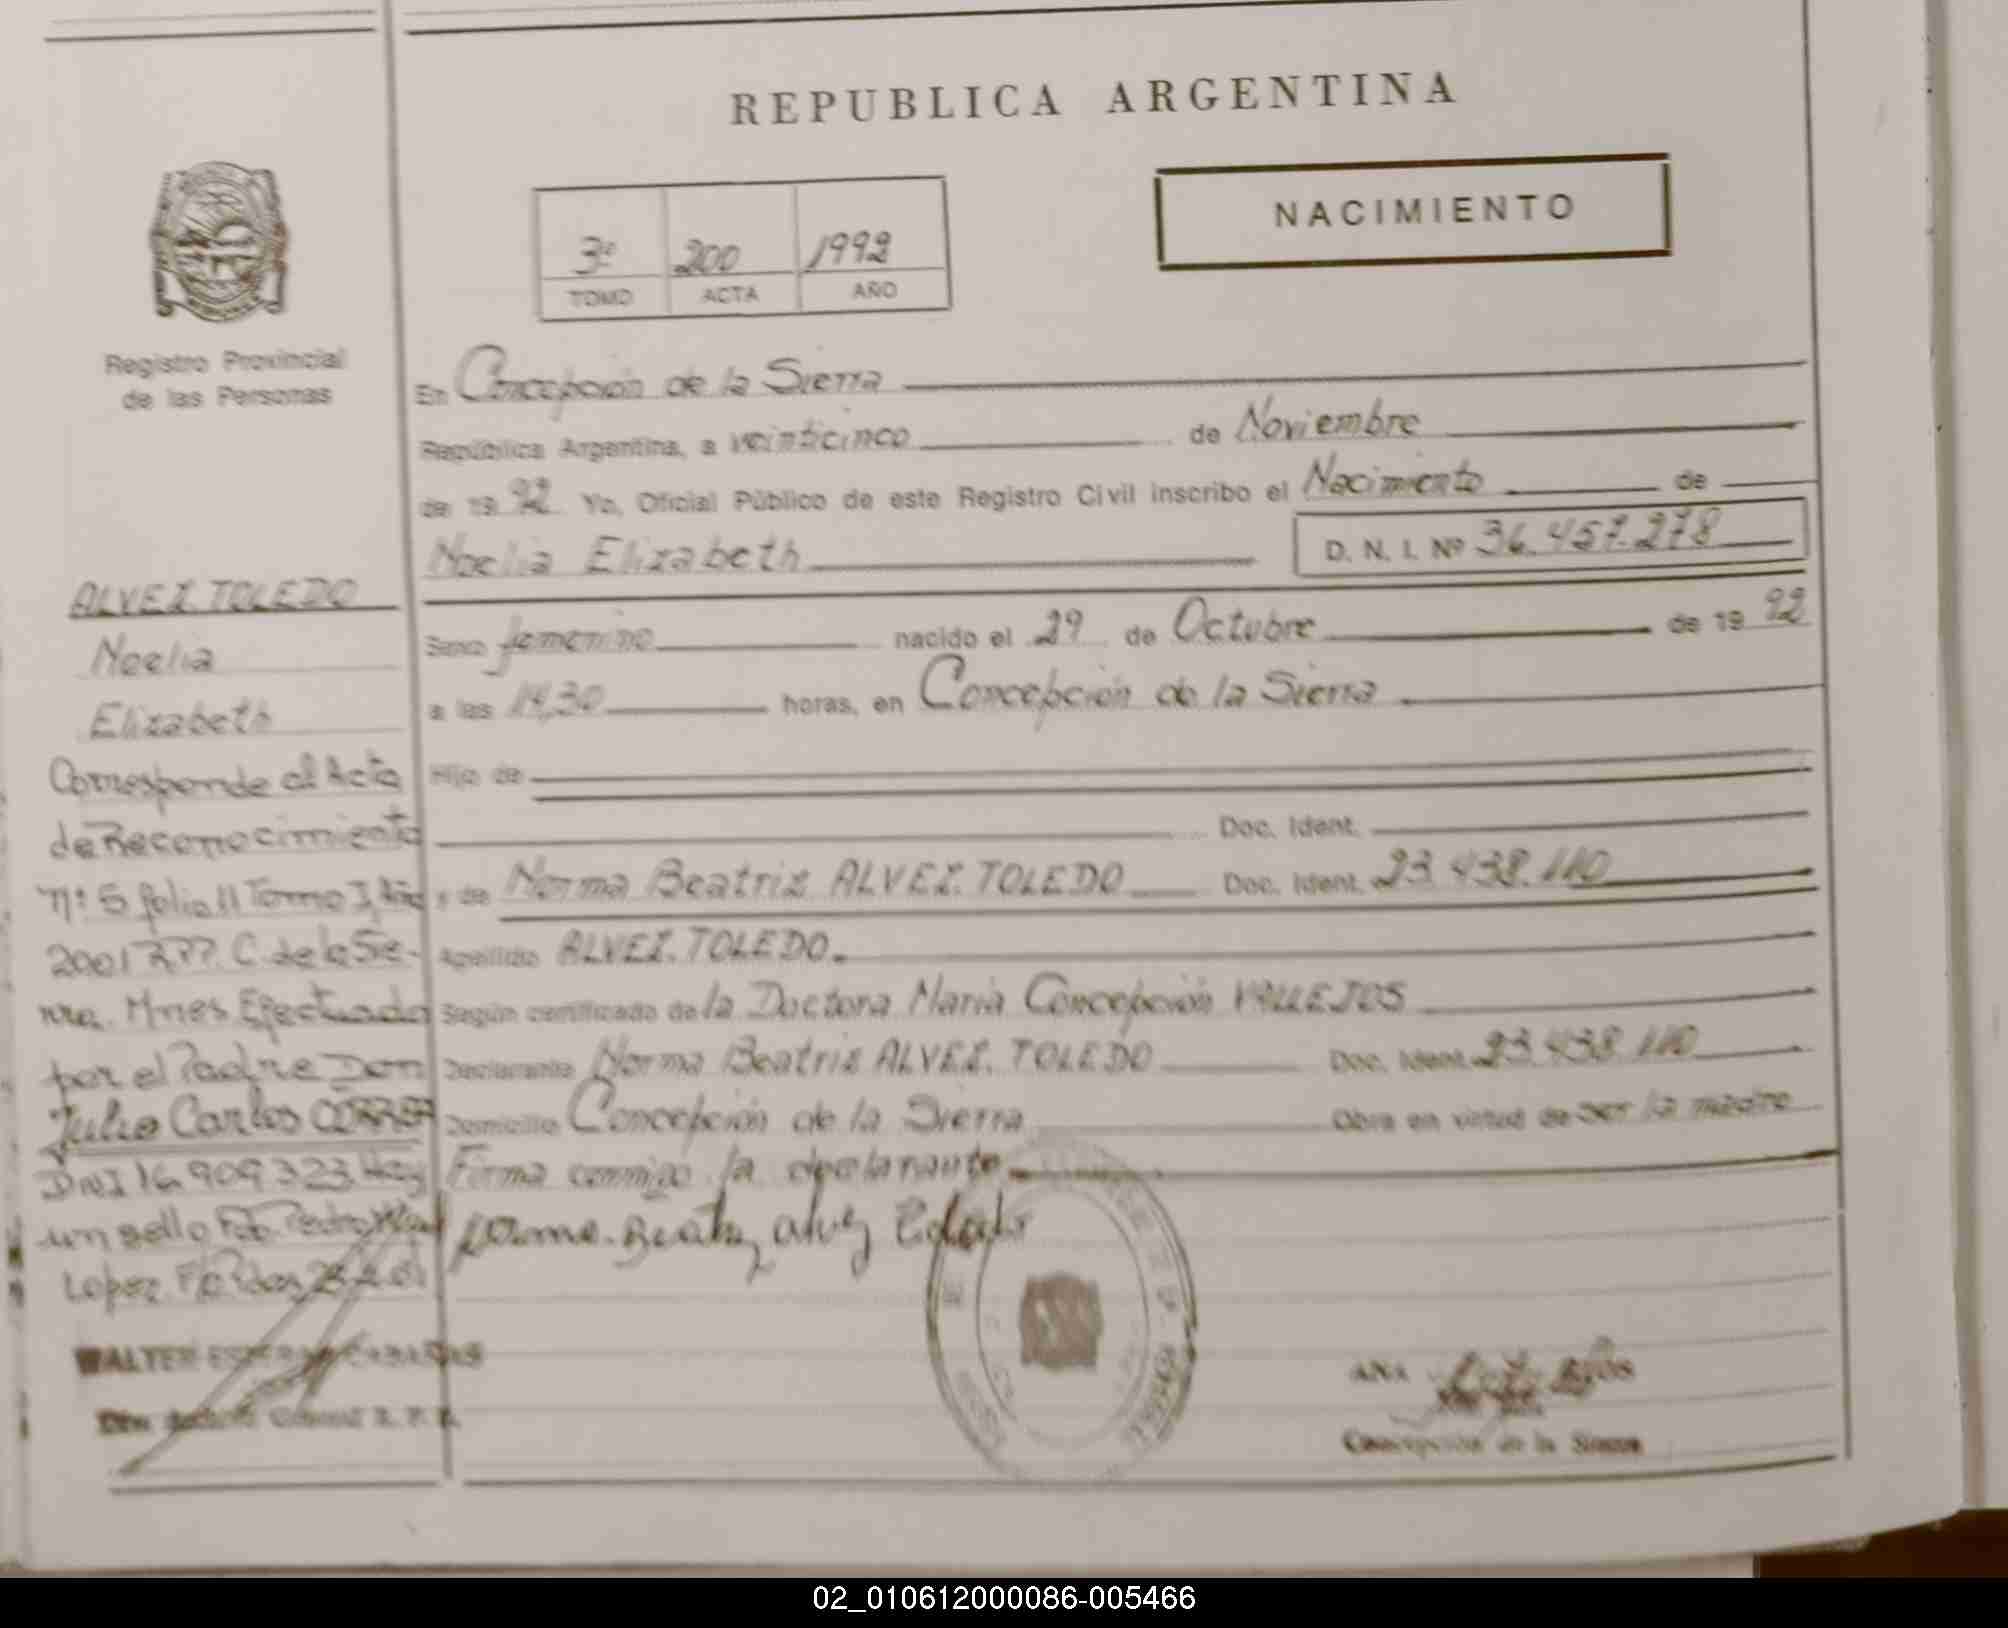 REPUBLICA ARGENTINA
NACIMIENTO
3º 200 1992
TOMO ACTA AÑO
Registro Provincial
de las Personas
En Concepción de la Sierra
República Argentina, a veinticinco de Noviembre
de 1992 Yo, Oficial Público de este Registro Civil inscribo el Nacimiento de
Noelia Elizabeth D. N. I. Nº 36.457.278
Sexo femenino nacido el 29 de Octubre de 1992
a las 14,30 horas, en Concepción de la Sierra
Hijo de
Doc. Ident.
y de Norma Beatriz ALVEZ. TOLEDO Doc. Ident. 23.438.110
Apellido ALVEZ. TOLEDO.
Según certificado de la Doctora María Concepción VALLEJOS
Declarante Norma Beatriz ALVEZ. TOLEDO Doc. Ident. 23.438.110
Domicilio Concepción de la Sierra Obra en virtud de ser la madre
Firma conmigo la declarante.
Norma Beatriz Alvez Toledo
ALVEZ. TOLEDO
Noelia
Elizabeth
Corresponde al Acta
de Reconocimiento
nº 5 folio 11 Tomo I, Año
2001 C. de la Sie-
rra. Mnes Efectuado
por el Padre Don
Julio Carlos
DNI 16.909.323 Hay
un sello Fdo. Pedro
Lopez
WALTER CABAÑAS
ANA
Concepción de la Sierra
02_010612000086-005466